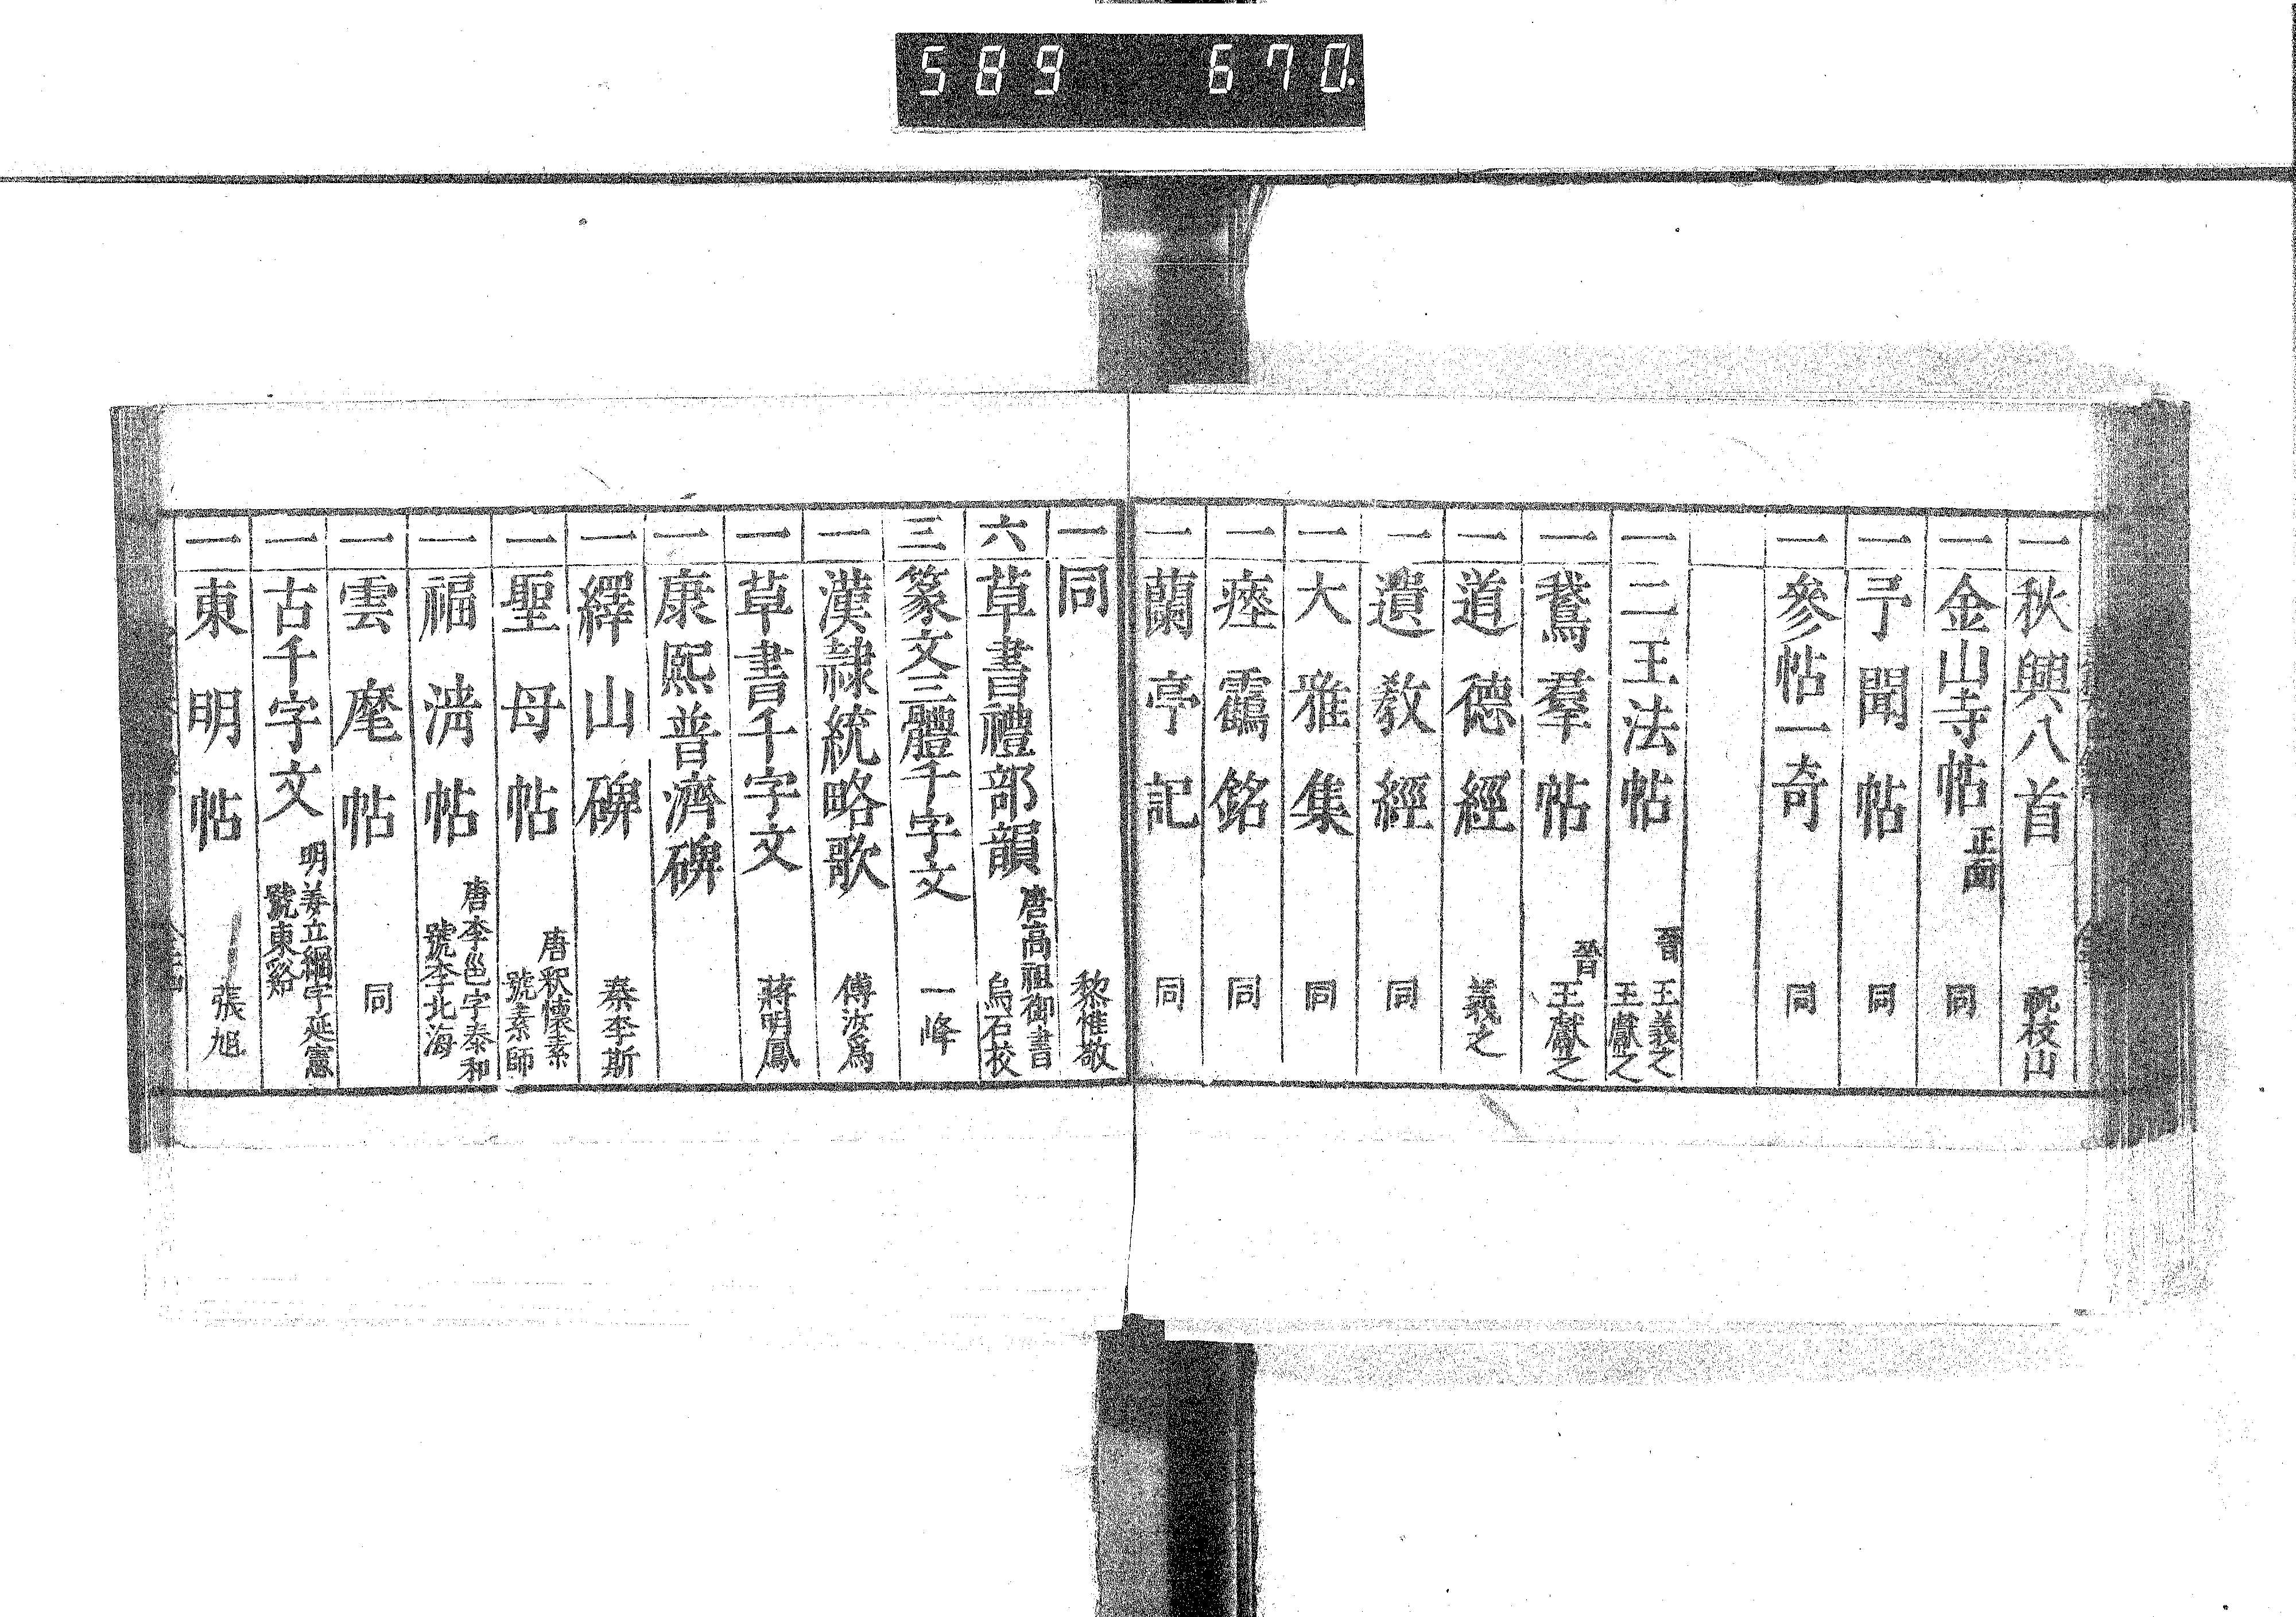 589 670.
一 秋興八首 祝枝山
一 金山寺帖 正面 同
一 予聞帖 同
一 參帖一奇 同
一 二王法帖 晉 王羲之 王獻之
一 鵞羣帖 晉 王獻之
一 道德經 羲之
一 遺教經 同
一 大雅集 同
一 瘞鶴銘 同
一 蘭亭記 同
一 同 黎惟敬
六 草書禮部韻 唐高祖御書 烏石校
三 篆文三體千字文 一峰
一 漢隷統略歌 傅汝爲
一 草書千字文 蔣明鳳
一 康熙普濟碑
一 繹山碑 秦李斯
一 聖母帖 唐釈懐素 號素師
一 福清帖 唐李邕字泰和 號李北海
一 雲麾帖 同
一 古千字文 明姜立綱字延憲 號東谿
一 東明帖 張旭